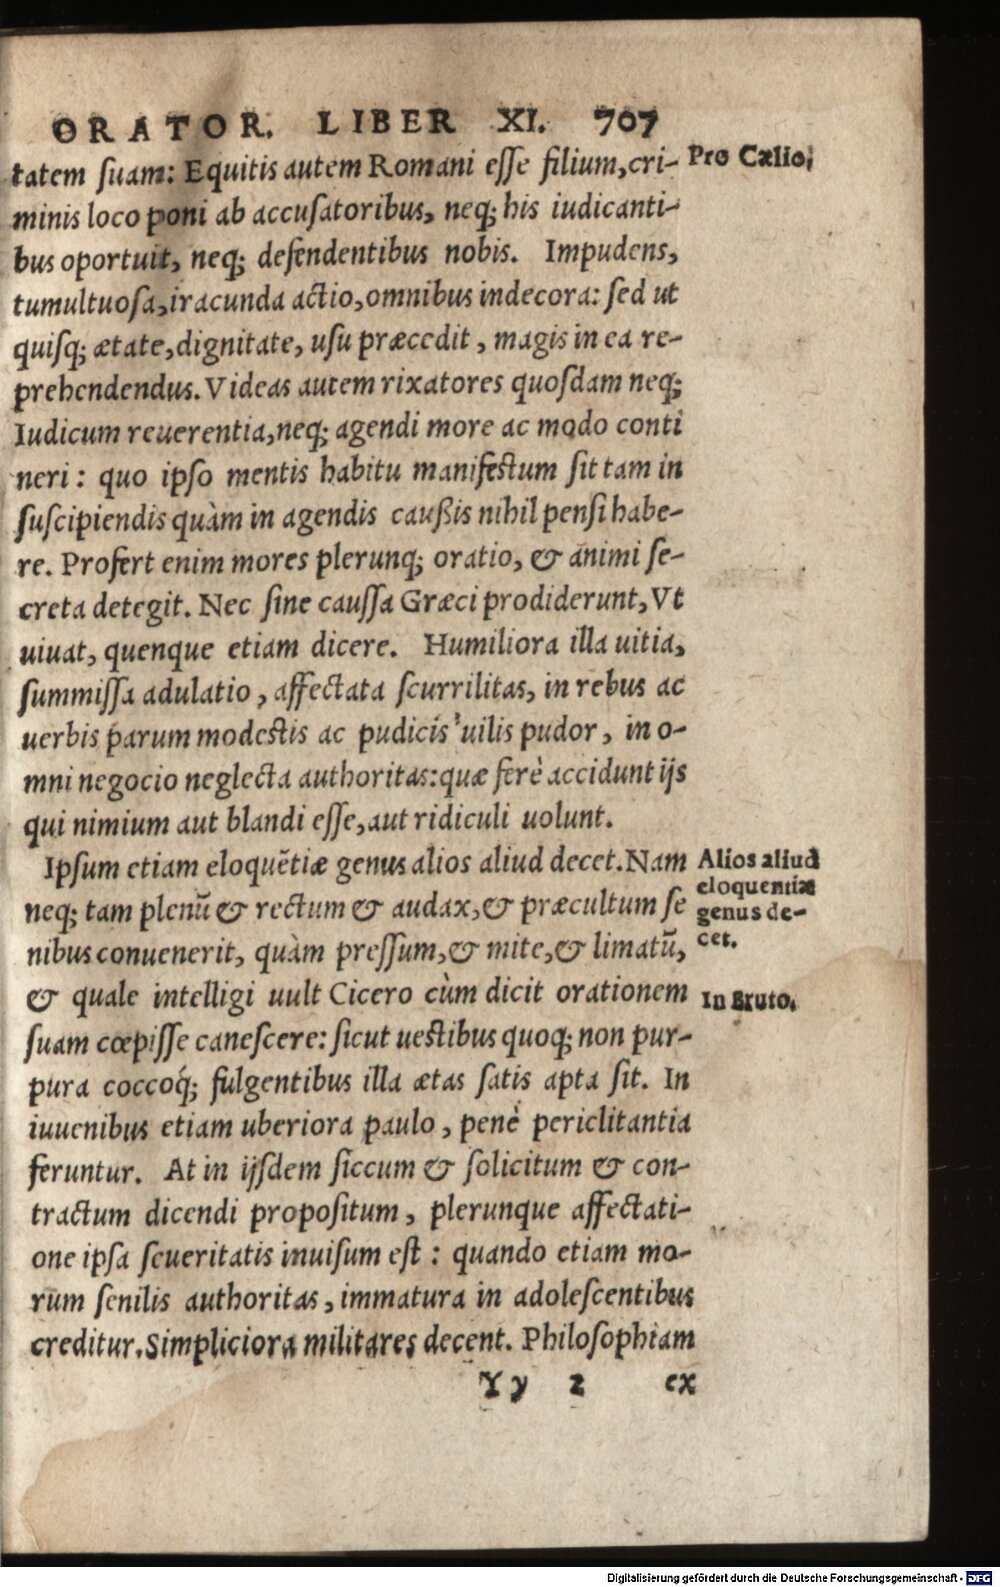 ORATOR. LIBER XI. 707
tatem suam: Equitis autem Romani esse filium, cri-
Pro Cælio.
minis loco poni ab accusatoribus, neq; his iudicanti-
bus oportuit, neq; defendentibus nobis. Impudens,
tumultuosa, iracunda actio, omnibus indecora: sed ut
quisq; ætate, dignitate, usu præcedit, magis in ea re-
prehendendus. Videas autem rixatores quosdam neq;
Iudicum reuerentia, neq; agendi more ac modo conti
neri: quo ipso mentis habitu manifestum sit tam in
suscipiendis quàm in agendis caußis nihil pensi habe-
re. Profert enim mores plerunq; oratio, & animi se-
creta detegit. Nec sine caussa Græci prodiderunt, Vt
uiuat, quenque etiam dicere. Humiliora illa uitia,
summissa adulatio, affectata scurrilitas, in rebus ac
uerbis parum modestis ac pudicis uilis pudor, in o-
mni negocio neglecta authoritas: quæ ferè accidunt ijs
qui nimium aut blandi esse, aut ridiculi uolunt.
Ipsum etiam eloquẽtiæ genus alios aliud decet. Nam
Alios aliud
eloquentiæ
genus de-
cet.
neq; tam plenũ & rectum & audax, & præcultum se
nibus conuenerit, quàm pressum, & mite, & limatũ,
& quale intelligi uult Cicero cùm dicit orationem
In Bruto.
suam cœpisse canescere: sicut uestibus quoq; non pur-
pura coccoq́; fulgentibus illa ætas satis apta sit. In
iuuenibus etiam uberiora paulo, penè periclitantia
feruntur. At in ijsdem siccum & solicitum & con-
tractum dicendi propositum, plerunque affectati-
one ipsa seueritatis inuisum est: quando etiam mo-
rum senilis authoritas, immatura in adolescentibus
creditur. Simpliciora militares decent. Philosophiam
Yy 2 ex
Digitalisierung gefördert durch die Deutsche Forschungsgemeinschaft - DFG